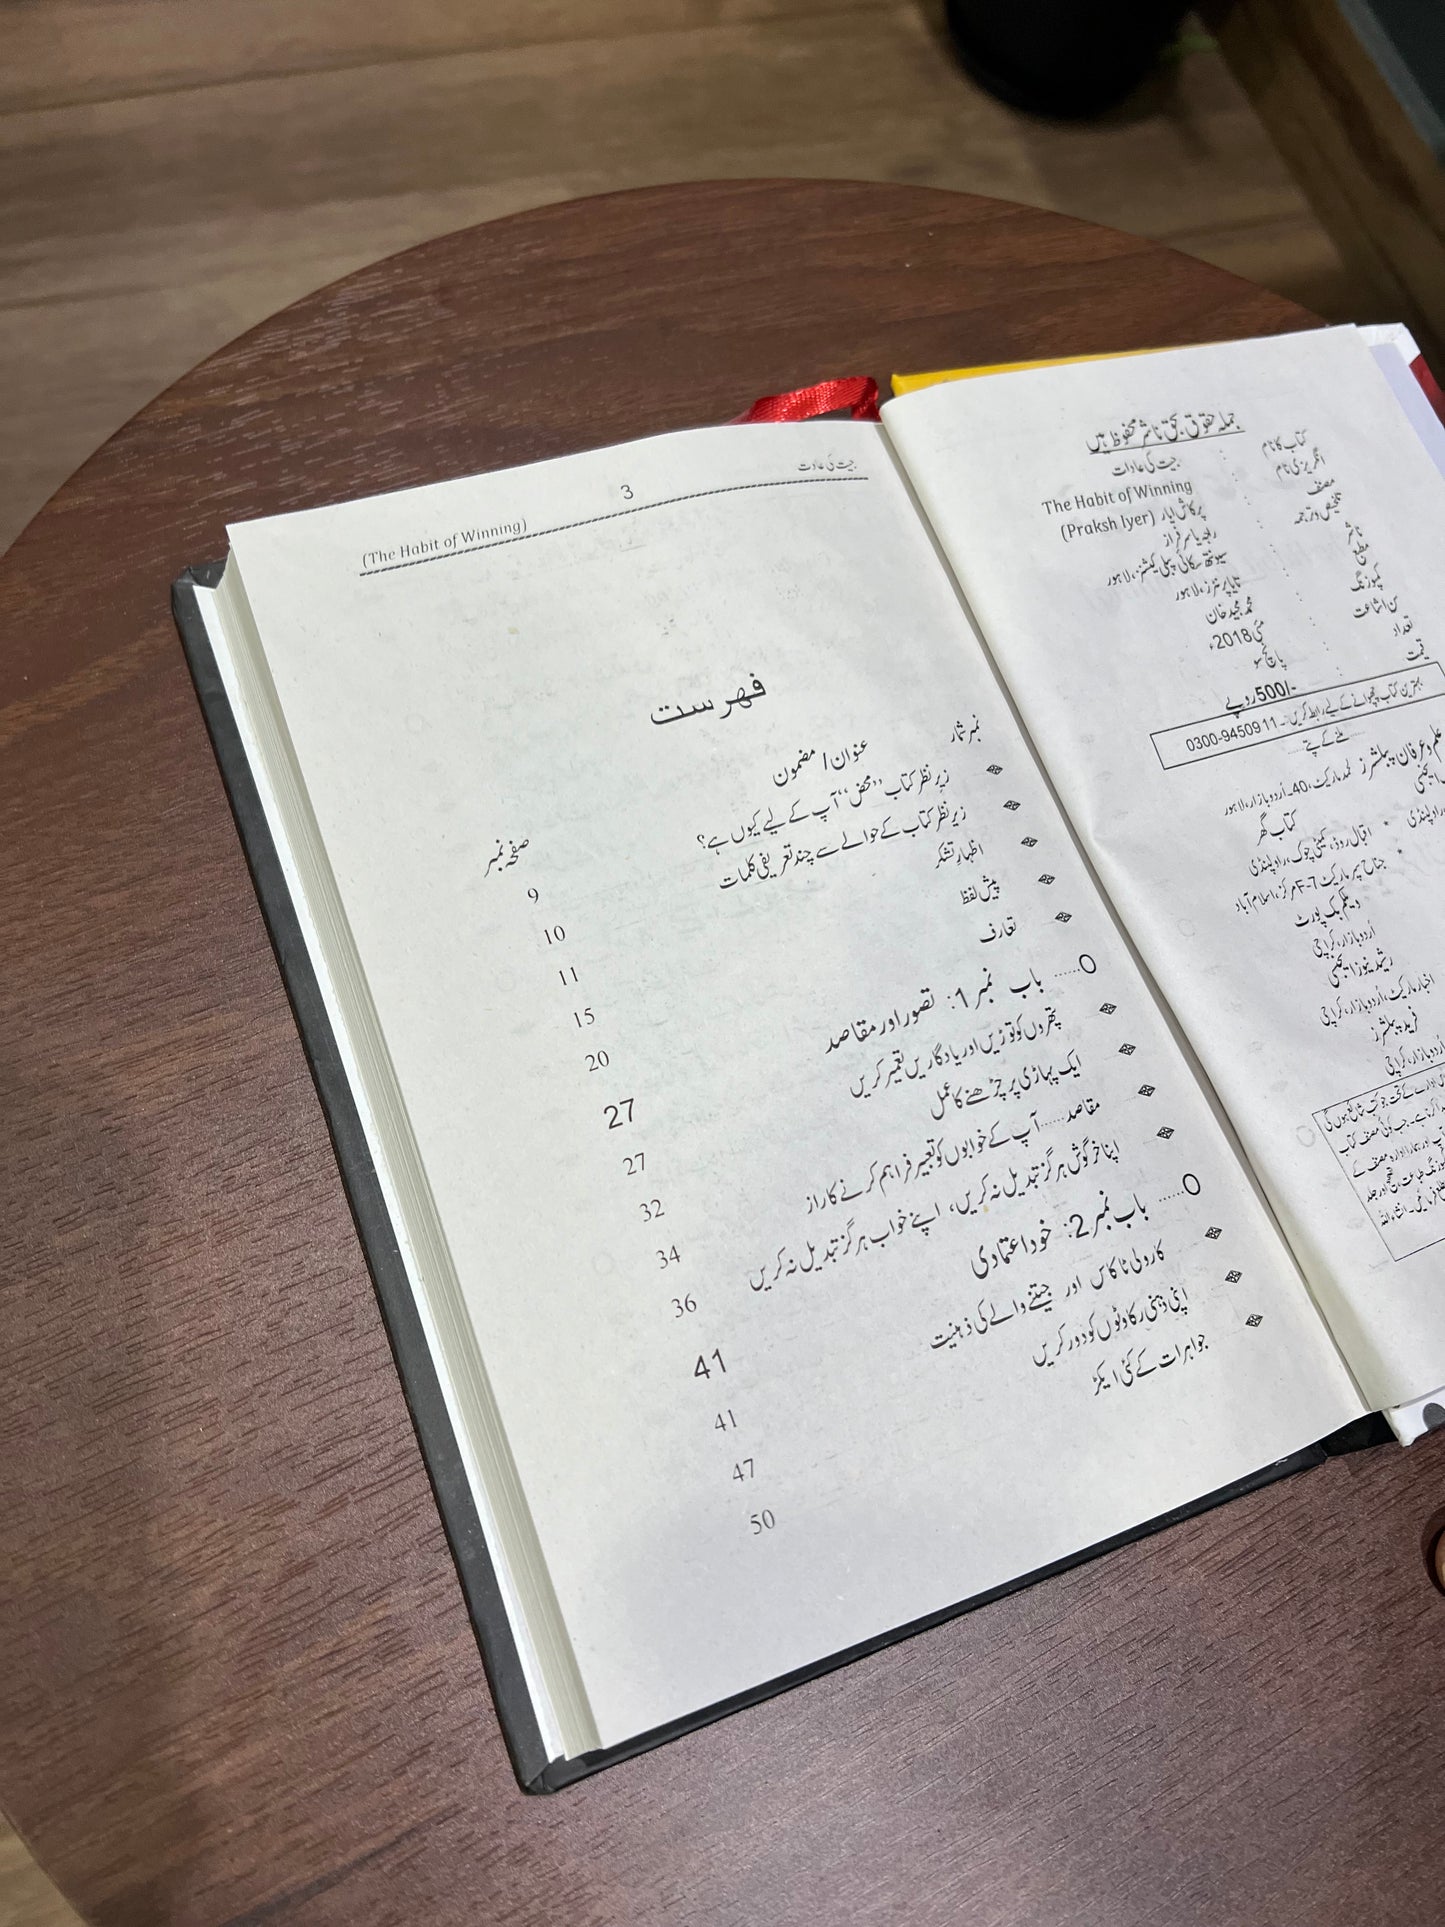 جملہ حقوق بحق ناشر محفوظ ہیں
کتاب کا نام : جیت کی عادات
انگریزی نام : The Habit of Winning
مصنف : پرکاش ایار (Praksh Iyer)
تلخیص و ترجمہ : رابعہ یاسر فراز
ناشر : سیونتھ سکائی پبلی کیشنز، لاہور
مطبع : تایا پرنٹرز، لاہور
کمپوزنگ : محمد مجید خان
سن اشاعت : مئی 2018ء
تعداد : پانچ سو
قیمت : -/500 روپے
بہترین کتاب چھپوانے کے لیے رابطہ کریں:۔ 0300-9450911
ملنے کے پتے
علم و عرفان پبلشرز
الحمد مارکیٹ، 40۔اُردو بازار، لاہور
کتاب گھر
اقبال روڈ، کمیٹی چوک، راولپنڈی
جناح سپر مارکیٹ F-7 مرکز، اسلام آباد
ویلکم بک پورٹ
اُردو بازار، کراچی
رشید نیوز ایجنسی
اخبار مارکیٹ، اُردو بازار، کراچی
فرید پبلشرز
اُردو بازار، کراچی
جیت کی عادت 3 (The Habit of Winning)
فہرست
نمبر شمار عنوان/مضمون صفحہ نمبر
زیر نظر کتاب ’’محض‘‘ آپ کے لیے کیوں ہے؟ 9
زیر نظر کتاب کے حوالے سے چند تعریفی کلمات 10
اظہارِ تشکر 11
پیش لفظ 15
تعارف 20
باب نمبر 1: تصور اور مقاصد 27
پتھروں کو توڑیں اور یادگاریں تعمیر کریں 27
ایک پہاڑی پر چڑھنے کا عمل 32
مقاصد...... آپ کے خوابوں کو تعبیر فراہم کرنے کا راز 34
اپنا خرگوش ہرگز تبدیل نہ کریں، اپنے خواب ہرگز تبدیل نہ کریں 36
باب نمبر 2: خود اعتمادی 41
کارولی ٹاکاس اور جیتنے والے کی ذہنیت 41
اپنی ذہنی رکاوٹوں کو دور کریں 47
جواہرات کے کئی ایکڑ 50